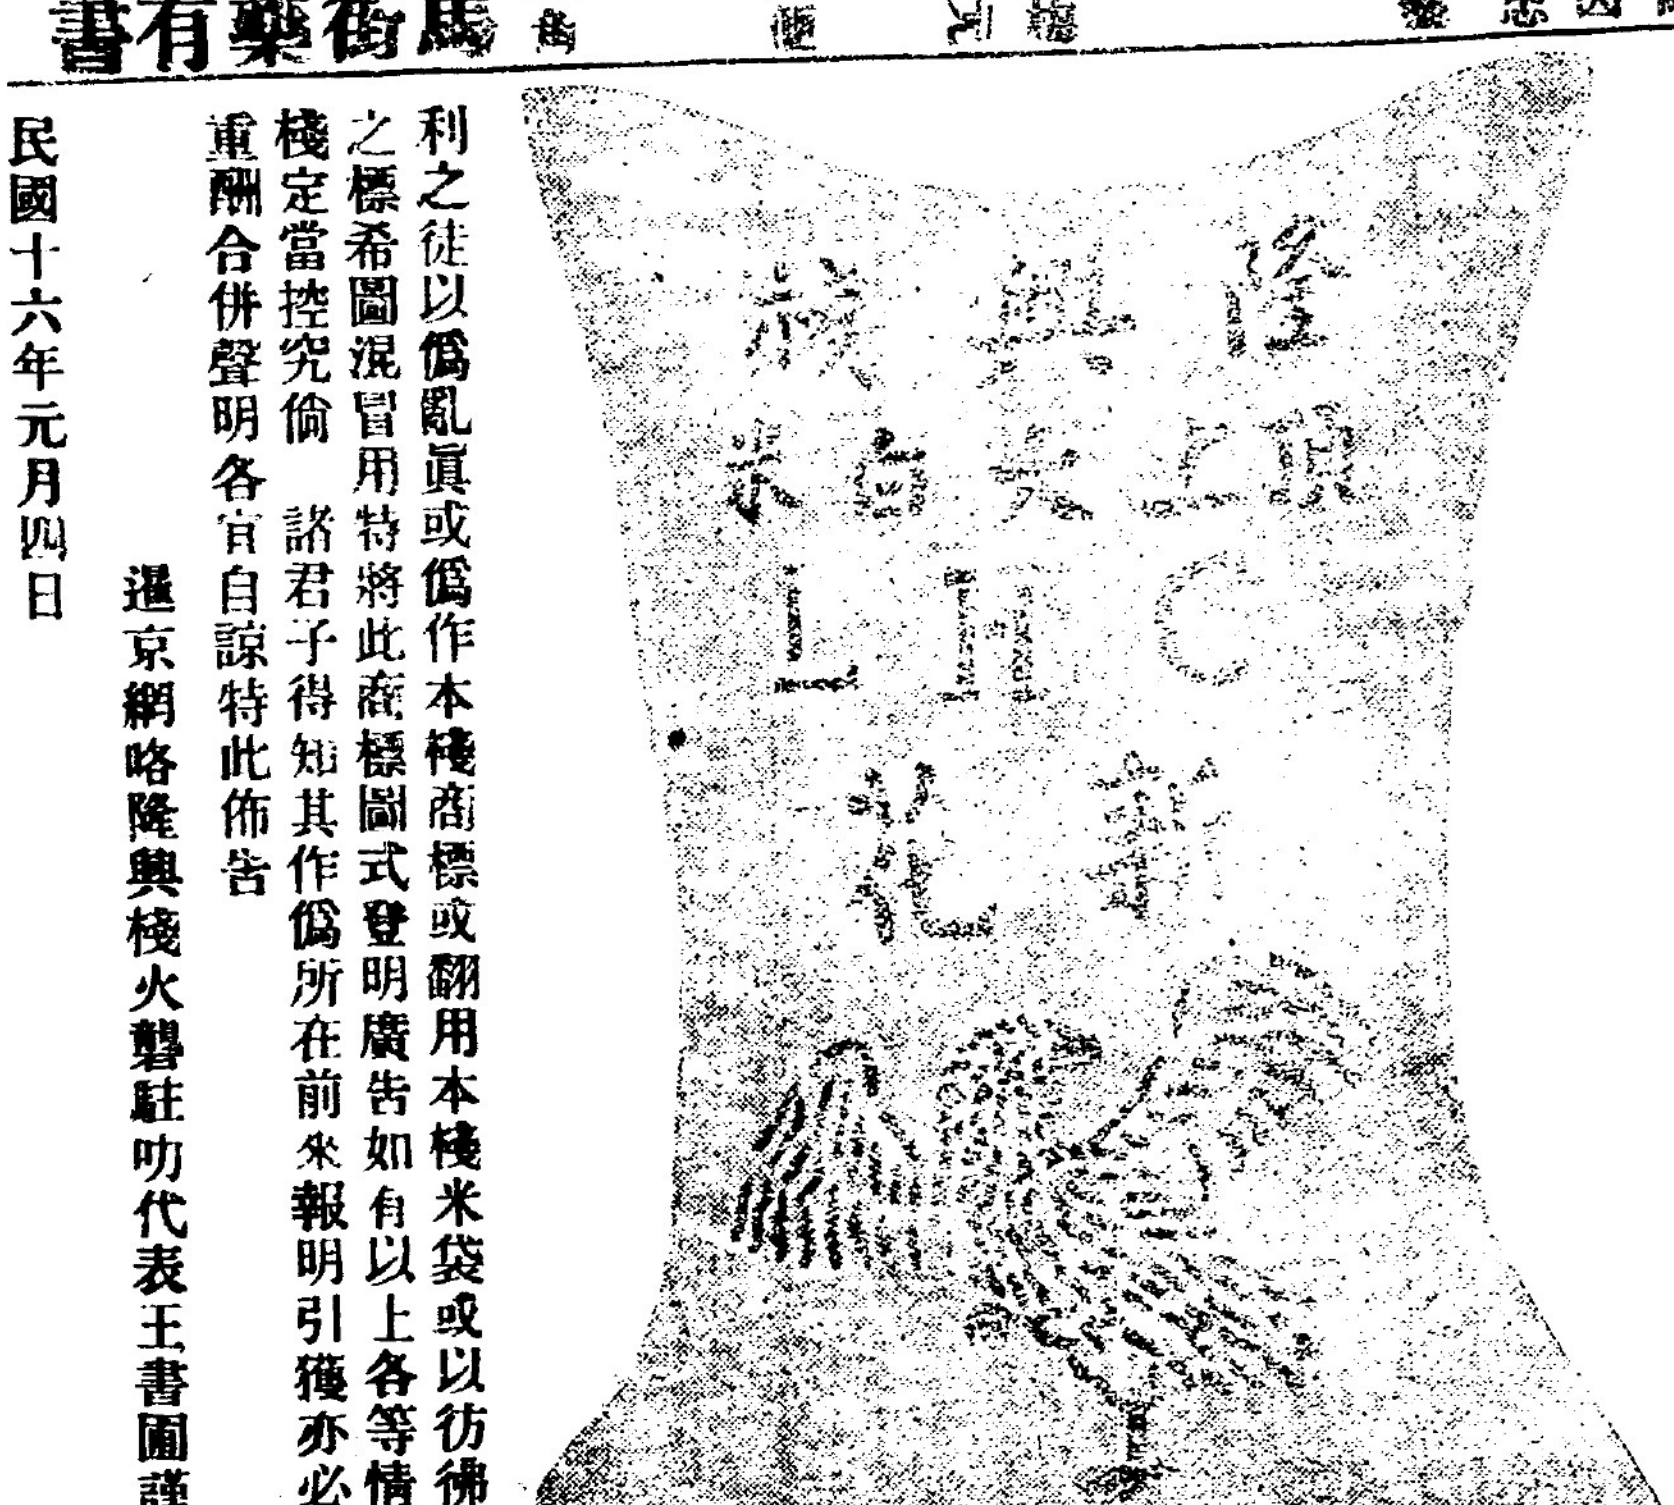 馬街藥有書
隆興棧
頂上大白米
L H C
新花
利之徒以僞亂眞或僞作本棧商標或翻用本棧米袋或以彷彿
之標希圖混冒用特將此商標圖式登明廣告如有以上各等情
棧定當控究倘 諸君子得知其作僞所在前來報明引獲亦必
重酬合併聲明各宜自諒特此佈告
暹京網咯隆興棧火礱駐叻代表王書圃謹
民國十六年元月四日